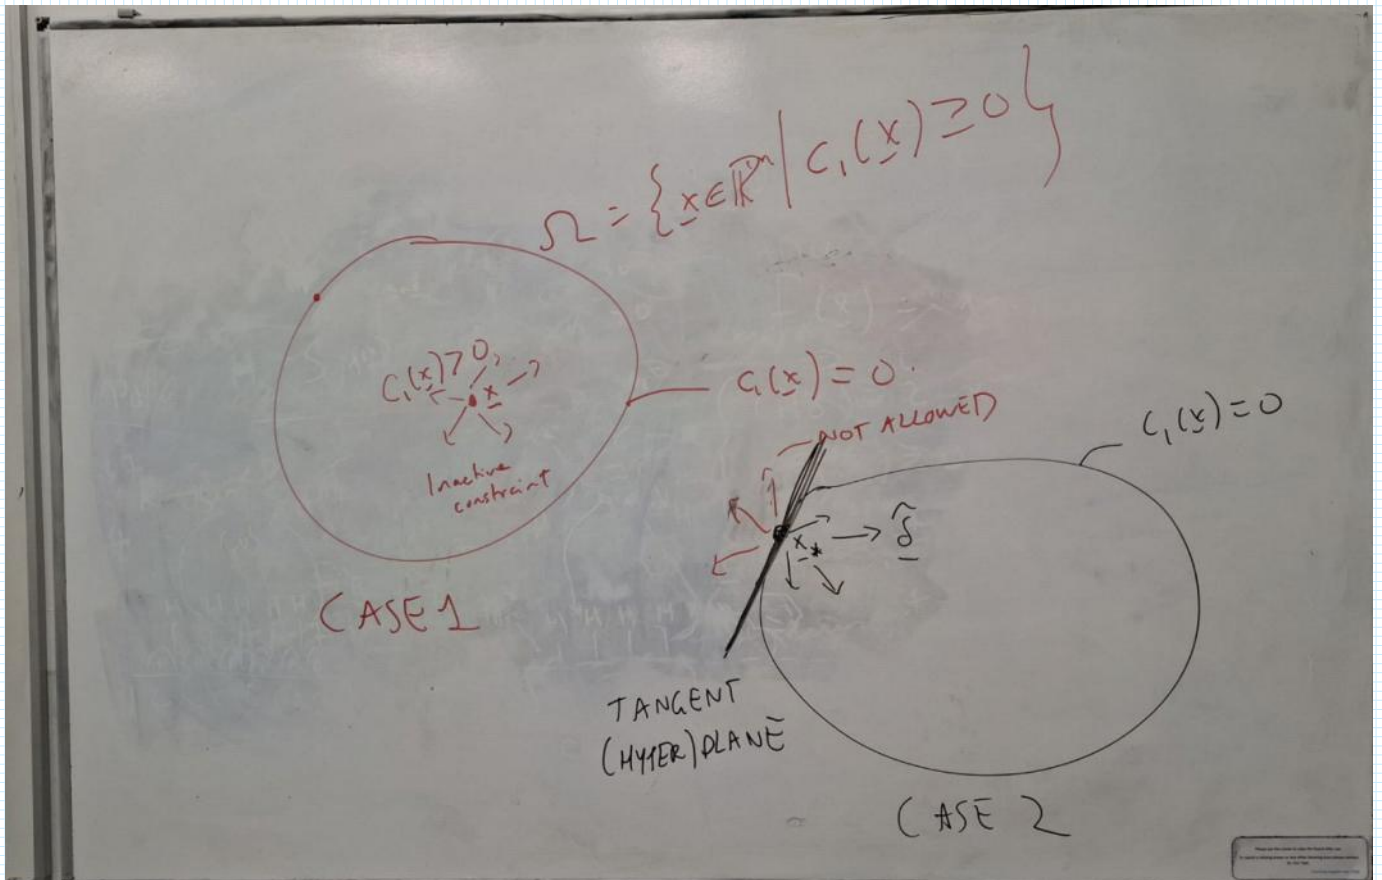 Ω = {x∈ℝⁿ | C₁(x) ≥ 0}
C₁(x) > 0
x
Inactive
constraint
C₁(x) = 0
CASE 1
NOT ALLOWED
C₁(x) = 0
x*
δ̂
TANGENT
(HYPER)PLANE
CASE 2